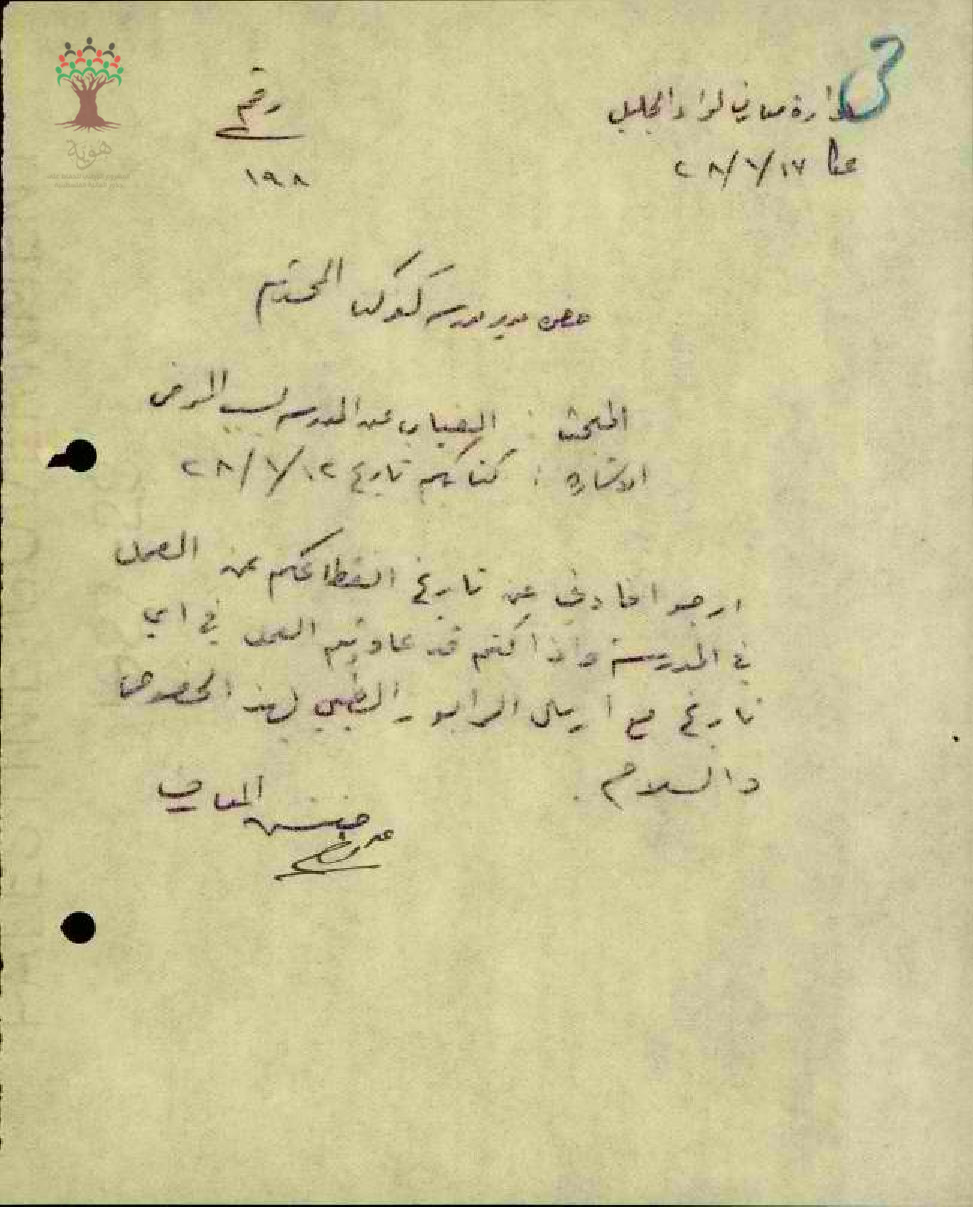 3
ادارة معارف لواء الجليل
رقم
عكا ١٧/١/٢٨
١٩٨
حضرة مدير مدرسة كوكبا المحترم
المبحث : الغياب عن المدرسة لسبب المرض
الاشارة : كتابكم تاريخ ١٢/١/٢٨
ارجو افادتي عن تاريخ انقطاعكم عن العمل
في المدرسة واذا كنتم قد عاودتم العمل في اي
تاريخ مع ارسال الرابور الطبي بهذا الخصوص
والسلام .
مفتش المعارف
هوية